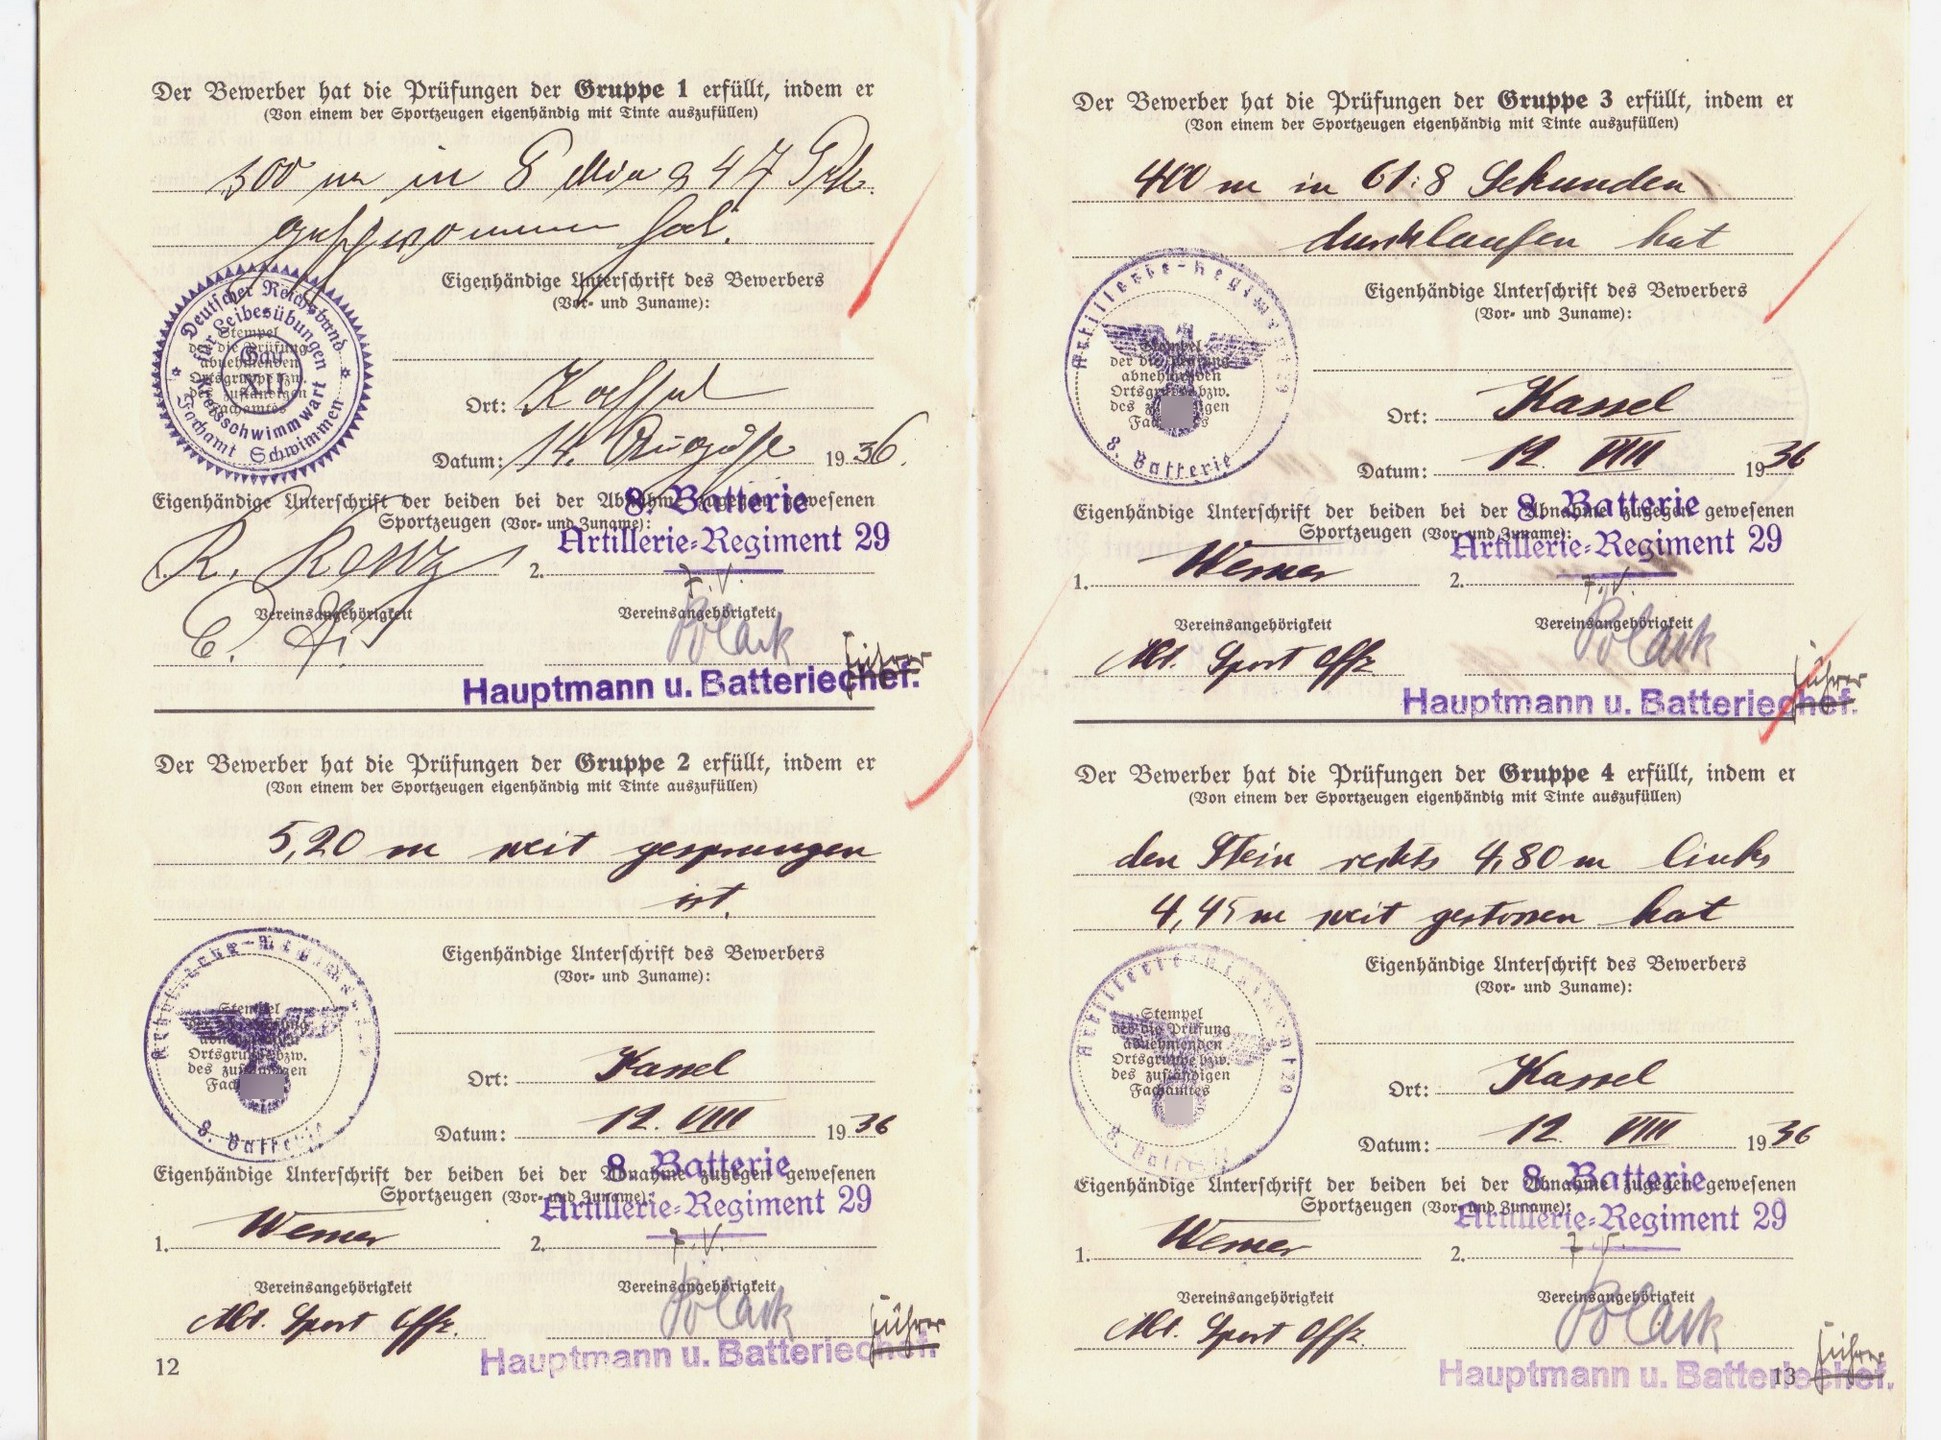 Der Bewerber hat die Prüfungen der Gruppe 1 erfüllt, indem er
(Von einem der Sportzeugen eigenhändig mit Tinte auszufüllen)
300 m in 8 Min 47 Sek.
geschwommen hat.
Eigenhändige Unterschrift des Bewerbers
(Vor- und Zuname):
Deutscher Reichsbund für Leibesübungen
Kreisschwimmwart
Fachamt Schwimmen
Gau XII
Stempel
der die Prüfung
abnehmenden
Ortsgruppe bzw.
des zuständigen
Fachamtes
Ort: Kassel
Datum: 14. August 1936.
Eigenhändige Unterschrift der beiden bei der Abnahme zugegen gewesenen
Sportzeugen (Vor- und Zuname):
8. Batterie
Artillerie-Regiment 29
1. R. 2.
Vereinsangehörigkeit Vereinsangehörigkeit
Polack
Hauptmann u. Batteriechef.
führer
Der Bewerber hat die Prüfungen der Gruppe 2 erfüllt, indem er
(Von einem der Sportzeugen eigenhändig mit Tinte auszufüllen)
5,20 m weit gesprungen
ist.
Eigenhändige Unterschrift des Bewerbers
(Vor- und Zuname):
Artillerie-Regiment
8. Batterie
Stempel
der die Prüfung
abnehmenden
Ortsgruppe bzw.
des zuständigen
Fachamtes
Ort: Kassel
Datum: 12. VIII 1936
Eigenhändige Unterschrift der beiden bei der Abnahme zugegen gewesenen
Sportzeugen (Vor- und Zuname):
8. Batterie
Artillerie-Regiment 29
1. Werner 2.
Vereinsangehörigkeit Vereinsangehörigkeit
Abt. Sport Offz. Polack
Hauptmann u. Batteriechef.
führer
12
Der Bewerber hat die Prüfungen der Gruppe 3 erfüllt, indem er
(Von einem der Sportzeugen eigenhändig mit Tinte auszufüllen)
400 m in 61:8 Sekunden
durchlaufen hat
Eigenhändige Unterschrift des Bewerbers
(Vor- und Zuname):
Artillerie-Regiment 29
8. Batterie
Stempel
der die Prüfung
abnehmenden
Ortsgruppe bzw.
des zuständigen
Fachamtes
Ort: Kassel
Datum: 12. VIII 1936
Eigenhändige Unterschrift der beiden bei der Abnahme zugegen gewesenen
Sportzeugen (Vor- und Zuname):
8. Batterie
Artillerie-Regiment 29
1. Werner 2.
Vereinsangehörigkeit Vereinsangehörigkeit
Abt. Sport Offz. Polack
Hauptmann u. Batteriechef.
führer
Der Bewerber hat die Prüfungen der Gruppe 4 erfüllt, indem er
(Von einem der Sportzeugen eigenhändig mit Tinte auszufüllen)
den Stein rechts 4,80 m links
4,45 m weit gestossen hat
Eigenhändige Unterschrift des Bewerbers
(Vor- und Zuname):
Artillerie-Regiment 29
8. Batterie
Stempel
der die Prüfung
abnehmenden
Ortsgruppe bzw.
des zuständigen
Fachamtes
Ort: Kassel
Datum: 12 VIII 1936
Eigenhändige Unterschrift der beiden bei der Abnahme zugegen gewesenen
Sportzeugen (Vor- und Zuname):
8. Batterie
Artillerie-Regiment 29
1. Werner 2.
Vereinsangehörigkeit Vereinsangehörigkeit
Abt. Sport Offz. Polack
Hauptmann u. Batteriechef.
führer
13